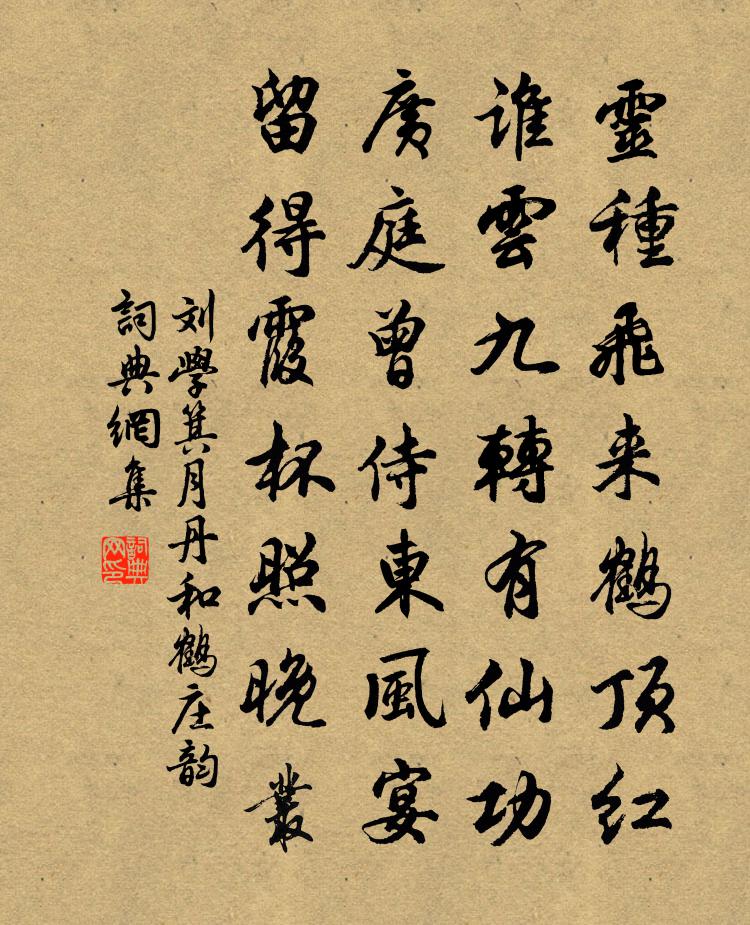 靈種飛来鶴頂红
誰雲九轉有仙功
廣庭曾侍東風宴
留得霞杯照晚叢
刘學箕月丹和鶴庄韵
詞典網集
詞典网印